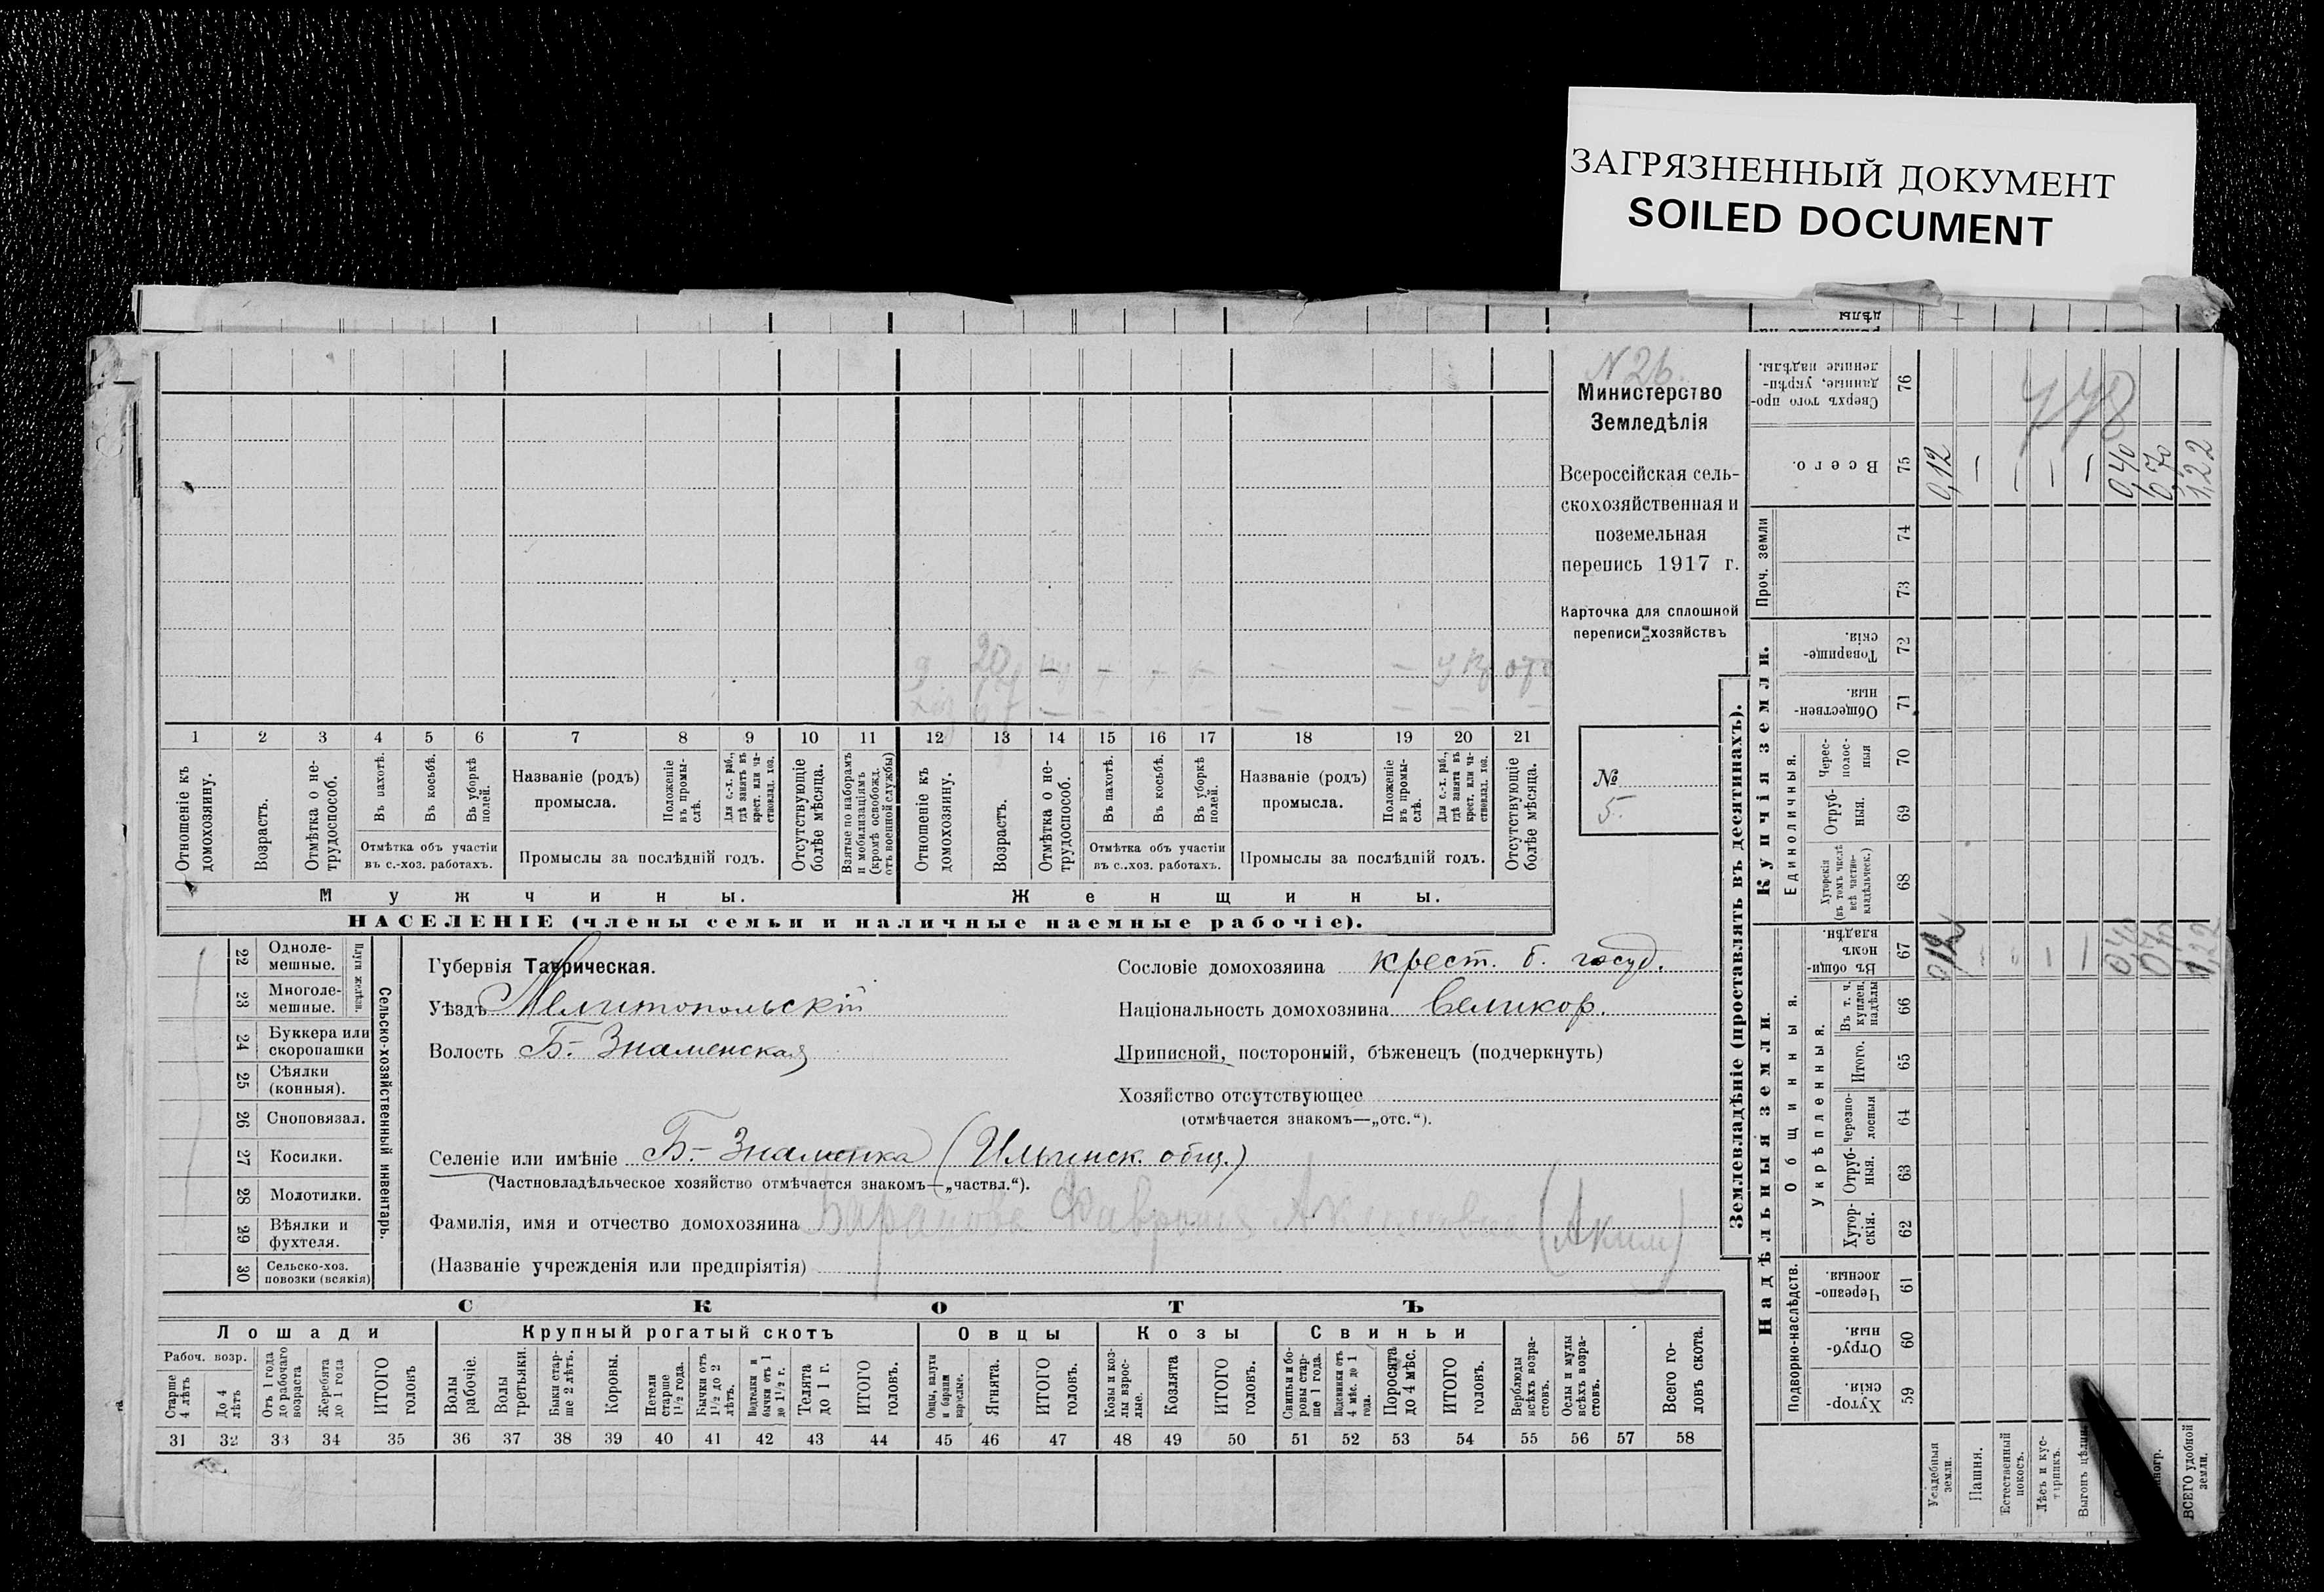 ЗАГРЯЗНЕННЫЙ ДОКУМЕНТ
SOILED DOCUMENT
N 26.
Министерство
Земледѣлія
Всероссійская сель-
скохозяйственная и
поземельная
перепись 1917 г.
Карточка для сплошной
переписи хозяйствъ
№
5.
20
67
1 2 3 4 5 6 7 8 9 10 11 12 13 14 15 16 17 18 19 20 21
Отношеніе къ домохозяину.
Возрастъ.
Отмѣтка о не-трудоспособ.
Въ пахотѣ.
Въ косьбѣ.
Въ уборкѣ полей.
Отмѣтка объ участіи
въ с.-хоз. работахъ.
Названіе (родъ)
промысла.
Положеніе въ промы-слѣ.
Для с.-х. раб., гдѣ занятъ въ крест. или ча-стновлад. хоз.
Промыслы за послѣдній годъ.
Отсутствующіе болѣе мѣсяца.
Взятые по наборамъ и мобилизаціямъ (кромѣ освобожд. отъ военной службы)
Отношеніе къ домохозяину.
Возрастъ.
Отмѣтка о не-трудоспособ.
Въ пахотѣ.
Въ косьбѣ.
Въ уборкѣ полей.
Отмѣтка объ участіи
въ с.-хоз. работахъ.
Названіе (родъ)
промысла.
Положеніе въ промы-слѣ.
Для с.-х. раб., гдѣ занята въ крест. или ча-стновлад. хоз.
Промыслы за послѣдній годъ.
Отсутствующіе болѣе мѣсяца.
Мужчины.
Женщины.
НАСЕЛЕНІЕ (члены семьи и наличные наемные рабочіе).
22 Одноле-мешные.
23 Многоле-мешные.
Плуги желѣзн.
24 Буккера или скоропашки
25 Сѣялки (конныя).
26 Сноповязал.
27 Косилки.
28 Молотилки.
29 Вѣялки и фухтеля.
30 Сельско-хоз. повозки (всякія)
Сельско-хозяйственный инвентарь.
Губернія Таврическая.
Уѣздъ Мелитопольскій
Волость Б.-Знаменская
Сословіе домохозяина крест. б. госуд.
Національность домохозяина Великор.
Приписной, посторонній, бѣженецъ (подчеркнуть)
Хозяйство отсутствующее
(отмѣчается знакомъ—„отс.“).
Селеніе или имѣніе Б.-Знаменка (Ильинск. общ.)
(Частновладѣльческое хозяйство отмѣчается знакомъ—„частвл.“).
Фамилія, имя и отчество домохозяина Баранова (Аким)
(Названіе учрежденія или предпріятія)
СКОТЪ
Лошади
Рабоч. возр.
Старше 4 лѣтъ
До 4 лѣтъ
Отъ 1 года до рабочаго возраста
Жеребята до 1 года
ИТОГО головъ
Крупный рогатый скотъ
Волы рабочіе.
Волы третьяки.
Быки стар-ше 2 лѣтъ.
Коровы.
Нетели старше 1½ года.
Бычки отъ 1½ до 2 лѣтъ.
Подтелки и бычки отъ 1 до 1½ г.
Телята до 1 г.
ИТОГО головъ.
Овцы
Овцы, валухи и бараны взрослые.
Ягнята.
ИТОГО головъ.
Козы
Козы и коз-лы взрос-лые.
Козлята
ИТОГО головъ.
Свиньи
Свиньи и бо-ровы стар-ше 1 года.
Подсвинки отъ 4 мѣс. до 1 года.
Поросята до 4 мѣс.
ИТОГО головъ.
Верблюды всѣхъ возра-стовъ.
Ослы и мулы всѣхъ возра-стовъ.
Всего го-ловъ скота.
31 32 33 34 35 36 37 38 39 40 41 42 43 44 45 46 47 48 49 50 51 52 53 54 55 56 57 58
Землевладѣніе (проставлять въ десятинахъ).
Сверхъ того про-данные, укрѣп-ленные надѣлы. 76
Всего. 75
0,12 0,40 0,70 1,22
Проч. земли
74
73
Купчія земли.
Товарище-скія. 72
Обществен-ныя. 71
Единоличныя.
Черес-полос-ныя 70
Отруб-ныя. 69
Хуторскія (въ томъ числѣ всѣ частно-владѣльческ.) 68
Надѣльныя земли.
Общинныя.
Въ общи-номъ владѣн. 67
1,22
Укрѣпленныя.
Въ т. ч. куплен. надѣлы 66
Итого. 65
Черезпо-лосныя 64
Отруб-ныя. 63
Хутор-скія. 62
Подворно-наслѣдств.
Черезпо-лосныя. 61
Отруб-ныя. 60
Хутор-скія. 59
Усадебныя земли.
Пашня.
Естественный покосъ.
Лѣсъ и кус-тарникъ.
Выгонъ
ВСЕГО удобной земли.